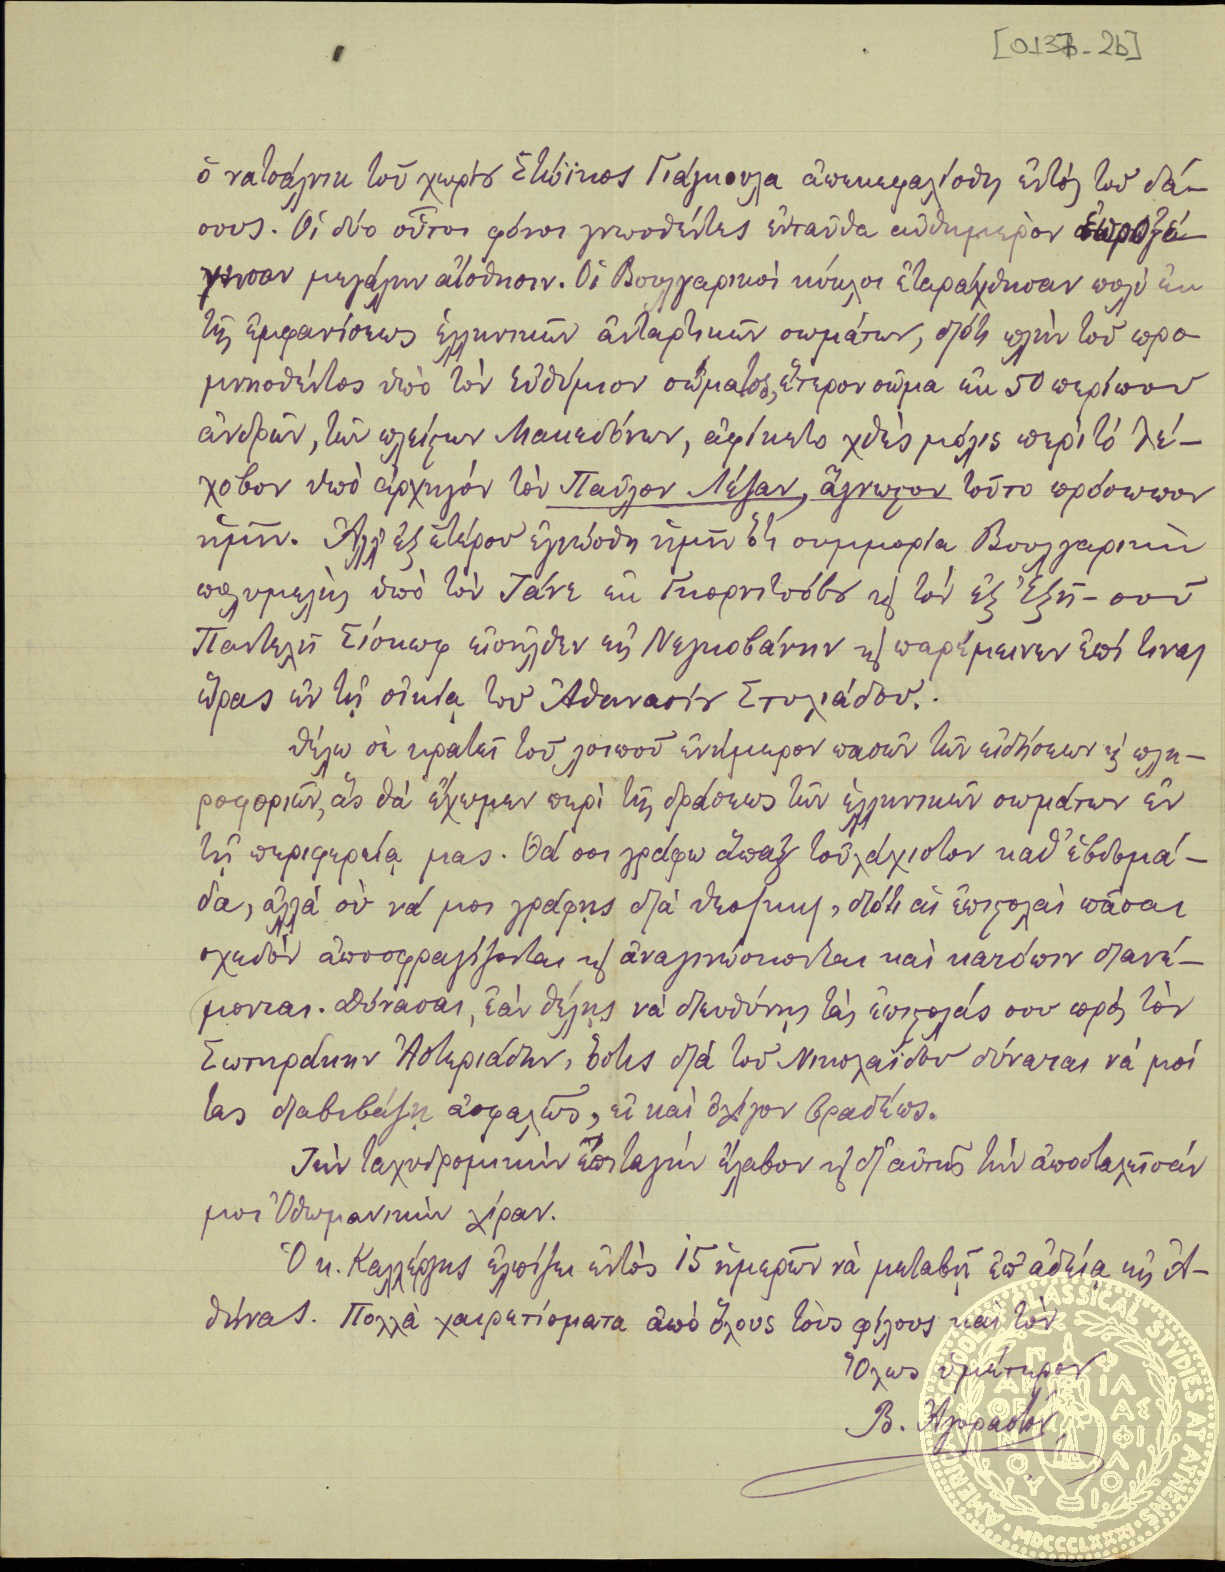 [0137-2b]
ὁ νατσάλνικ τοῦ χωρίου Στώϊκος Γιάγκουλα ἀπεκεφαλίσθη ἐντὸς τοῦ δά-
σους. Οἱ δύο οὗτοι φόνοι γνωσθέντες ἐνταῦθα αὐθημερὸν
μεγάλην αἴσθησιν. Οἱ Βουλγαρικοὶ κύκλοι ἐταράχθησαν πολὺ ἐκ
τῆς ἐμφανίσεως ἑλληνικῶν ἀνταρτικῶν σωμάτων, διότι πλὴν τοῦ προ-
μνησθέντος ὑπὸ τὸν Εὐθύμιον σώματος, ἕτερον σῶμα ἐκ 50 περίπου
ἀνδρῶν, τῶν πλείστων Μακεδόνων, ἀφίκετο χθὲς μόλις περὶ τὸ Λέ-
χοβον ὑπὸ ἀρχηγὸν τὸν Παῦλον Λέζαν, ἄγνωστον τοῦτο πρόσωπον
ἡμῖν. Ἀλλ' ἐξ ἑτέρου ἐγνώσθη ἡμῖν ὅτι συμμορία Βουλγαρικὴ
πολυμελὴς ὑπὸ τὸν Τάνε ἐκ Γκορνιτσόβου κ τὸν ἐξ Ἐξῆ-σοῦ
Παντελῆ Σίσκωφ εἰσῆλθεν εἰς Νεγκοβάνην κ παρέμεινεν ἐπί τινας
ὥρας ἐν τῇ οἰκίᾳ τοῦ Ἀθανασίου Στυλιάδου.
Θέλω σὲ κρατεῖ τοῦ λοιποῦ ἐνήμερον πασῶν τῶν εἰδήσεων κ πλη-
ροφοριῶν, ἃς θὰ ἔχωμεν περὶ τῆς δράσεως τῶν ἑλληνικῶν σωμάτων ἐν
τῇ περιφερείᾳ μας. Θά σοι γράφω ἅπαξ τοὐλάχιστον καθ' ἑβδομά-
δα, ἀλλὰ σὺ νά μοι γράφῃς διὰ Θεσ/κης, διότι αἱ ἐπιστολαὶ πᾶσαι
σχεδὸν ἀποσφραγίζονται κ ἀναγινώσκονται καὶ κατόπιν διανέ-
μονται. Δύνασαι, ἐὰν θέλῃς νὰ διευθύνῃς τὰς ἐπιστολάς σου πρὸς τὸν
Σωτηράκην Ἀστεριάδην, ὅστις διὰ τοῦ Νικολαΐδου δύναται νά μοί
τας διαβιβάζῃ ἀσφαλῶς, εἰ καὶ ὀλίγον βραδέως.
Τὴν ταχυδρομικὴν ἐπιταγὴν ἔλαβον κ δι' αὐτῆς τὴν ἀποσταλεῖσάν
μοι Ὀθωμανικὴν λίραν.
Ὁ κ. Καλλέργης ἐλπίζει ἐντὸς 15 ἡμερῶν νὰ μεταβῇ ἐπ' ἀδείᾳ εἰς Ἀ-
θήνας. Πολλὰ χαιρετίσματα ἀπὸ ὅλους τοὺς φίλους καὶ τὸν
Ὅλως ὑμέτερον
Β. Ἀγοραστόν
AMERICAN SCHOOL OF CLASSICAL STUDIES AT ATHENS
MDCCCLXXXI